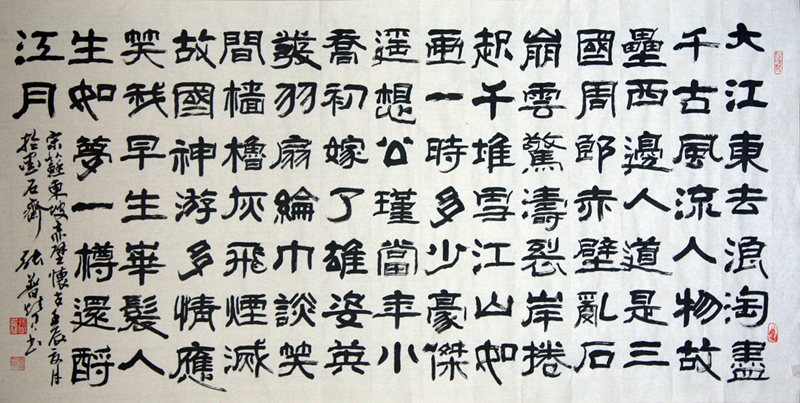 大江東去浪淘盡
千古風流人物故
壘西邊人道是三
國周郎赤壁亂石
崩雲驚濤裂岸捲
起千堆雪江山如
畫一時多少豪傑
遥想公瑾當年小
喬初嫁了雄姿英
發羽扇綸巾談笑
間檣櫓灰飛煙滅
故國神游多情應
笑我早生華髮人
生如夢一樽還酹
江月
宋蘇東坡赤壁懷古壬辰月
於墨石齋 張普書